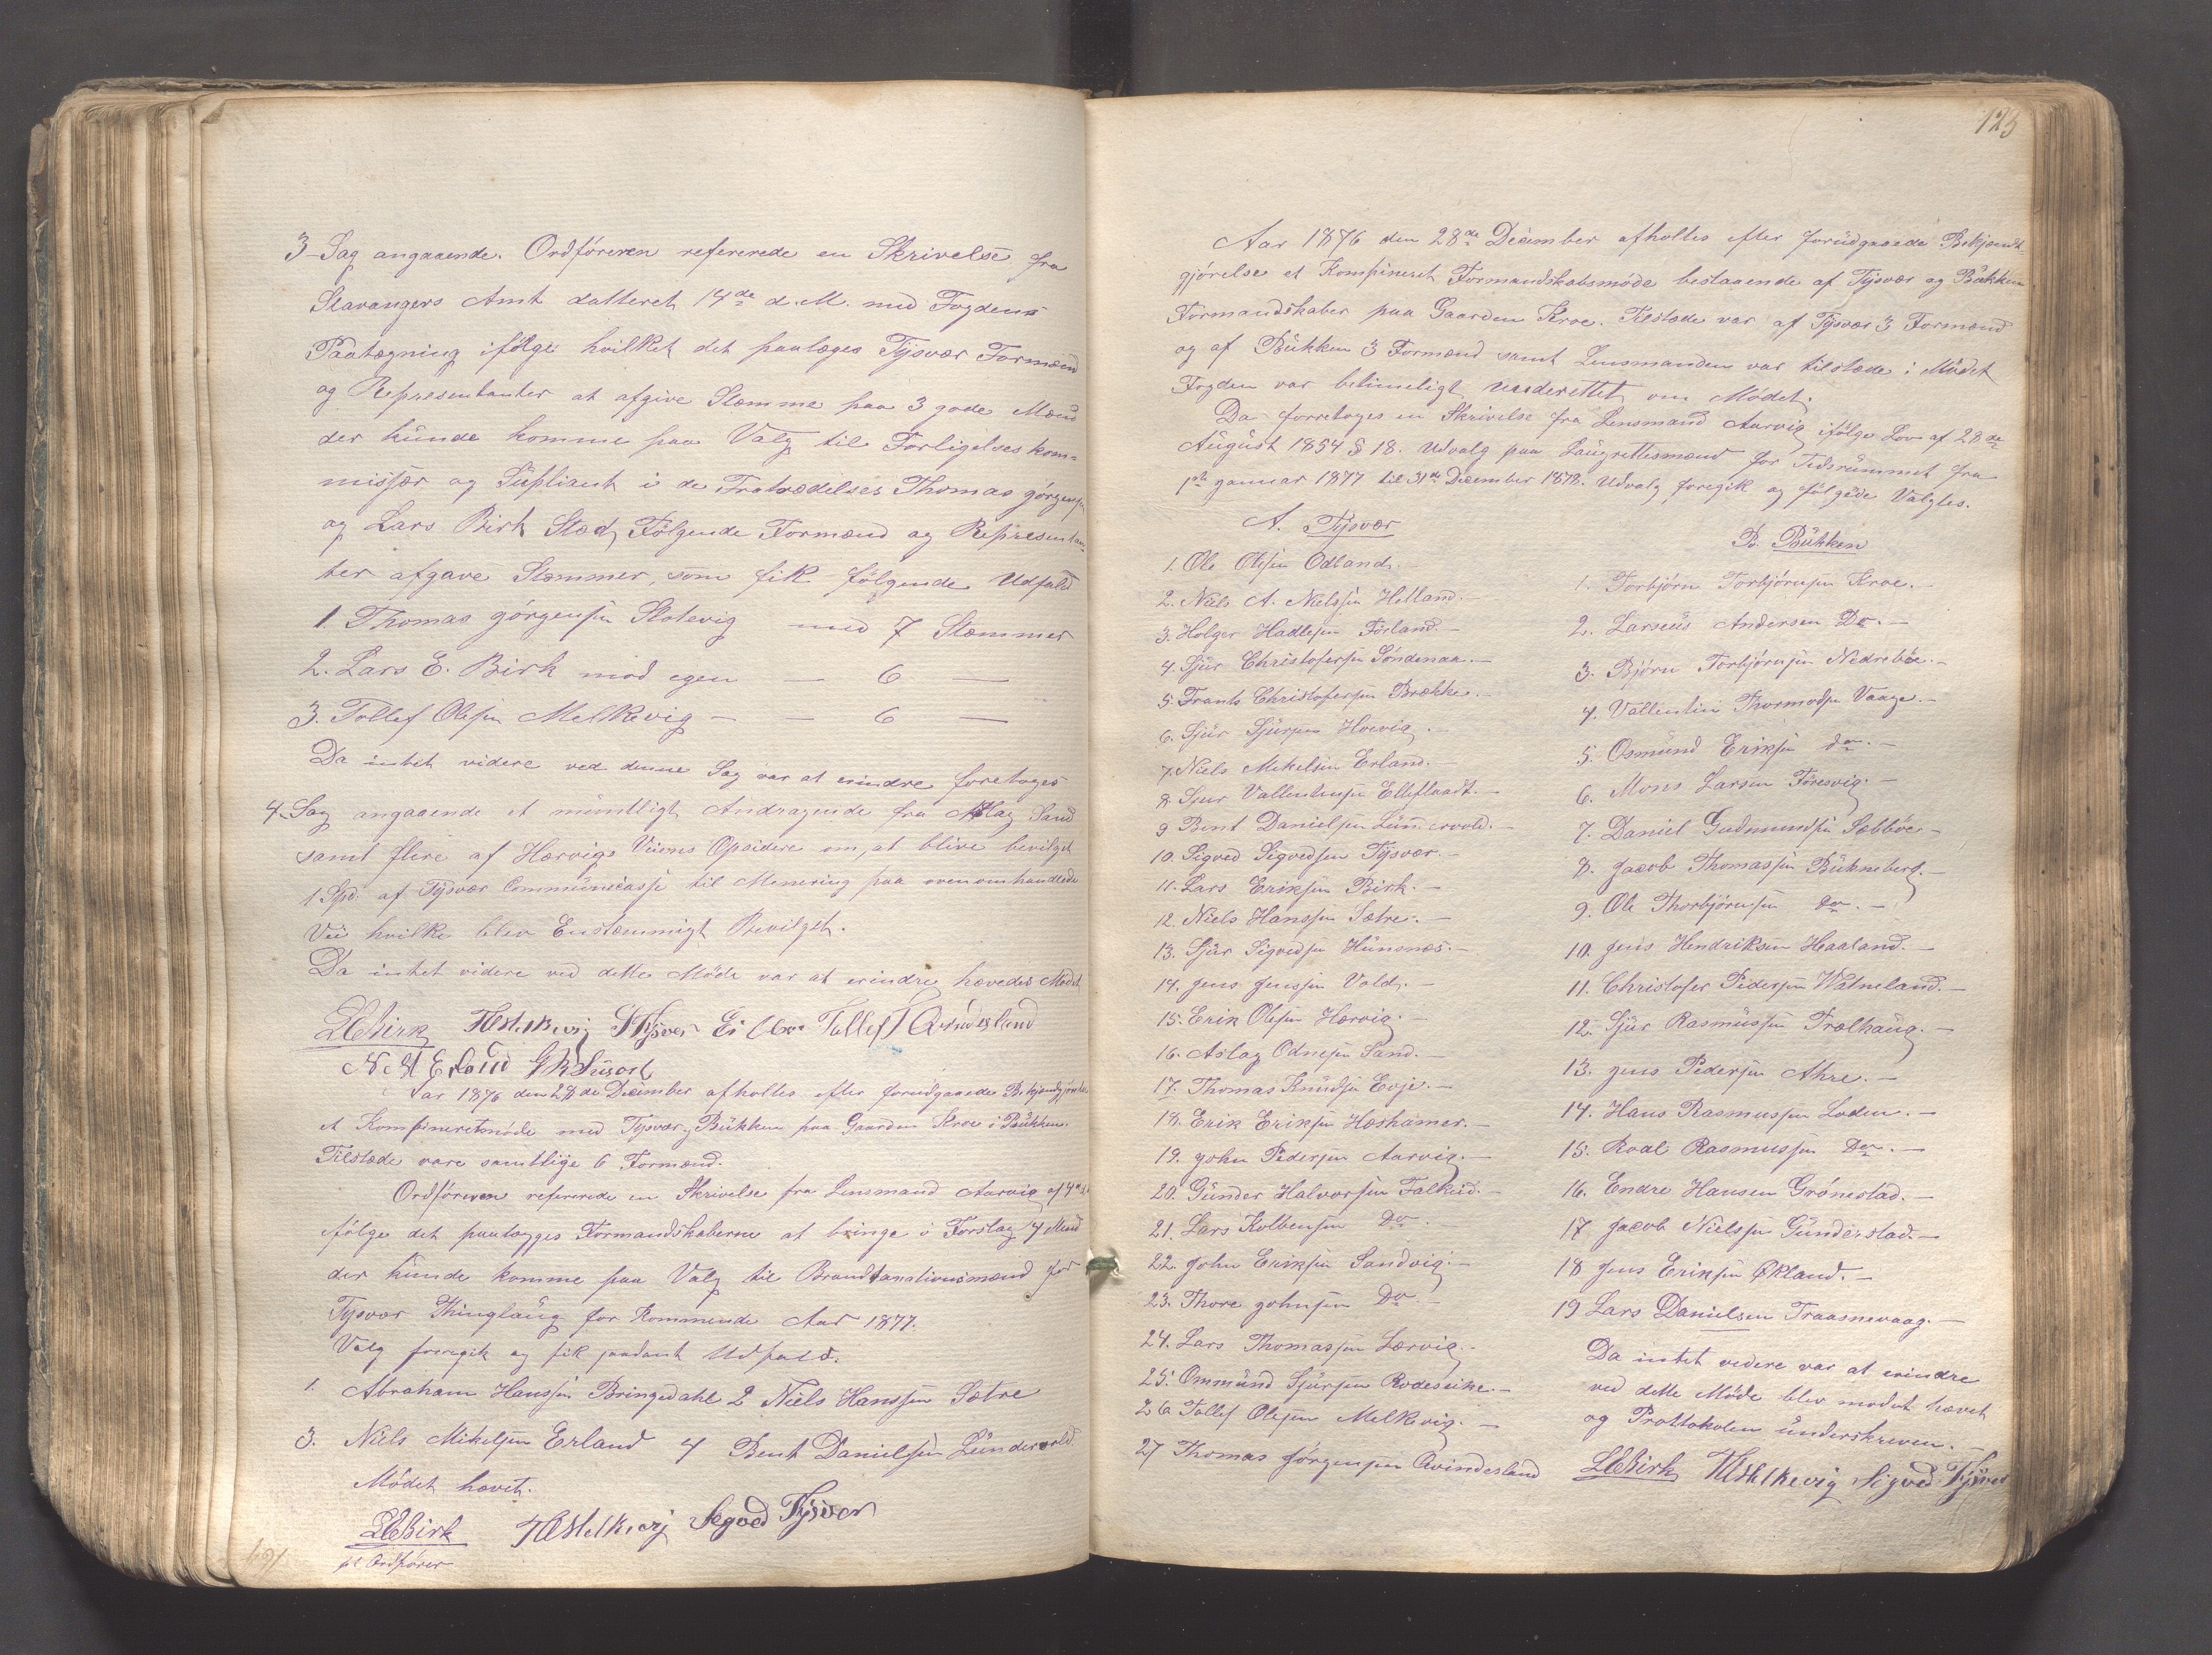 3- Sag angaaende. Ordføreren refererede en Skrivelse fra
Stavangers Amt datteret 14de d. M. med Fogdens
Paategning ifølge hvilket det paalæges Tysvær Formænd
og Representanter at afgive Stemme paa 3 gode Mænd
der kunde komme paa Valg til Forligelseskom-
missær og Supliant i de Fratrædelses Thomas Jørgensen
og Lars Birk Sted, Følgende Formænd og Representan-
ter afgave Stemmer, som fik følgende Udfald
1. Thomas Jørgensen Slotevig med 7 Stemmer
2. Lars E. Birk mod egen — 6 —
3. Tollef Olesen Melkevig — — 6 —
Da intet videre ved denne Sag var at erindre foretoges
4- Sag angaaende et mundtligt Andragende fra Aslag Sand
samt flere af Hærvigs Veiens Opsidere om, at blive bevilget
1 Spd. af Tysvær Communecasse til Menering paa ovenomhandlede
Vei hvilke blev Enstemmigt Bevilget.
Da intet videre ved dette Møde var at erindre hævedes Mødet
LEBirk TOMelkevig STysver Tollef T Qvindesland
N M Erland
Aar 1876 den 28de December afholtes efter forudgaaende Bekjendtgjørelse
et Kompineretmøde med Tysvær og Bukken paa Gaarden Kroe i Bukken.
Tilstede vare samtlige 6 Formænd.
Ordføreren refererede en Skrivelse fra Lensmand Aarvig af 4de d.
ifølge det paalægges Formandskaberne at bringe i Forslag 4 Mænd
der kunde komme paa Valg til Brandtaxationsmænd for
Tysvær Thinglaug for Kommende Aar 1877.
Valg foregik og fik saadant Udfald.
1. Abraham Hanssen Bringedahl 2 Niels Hanssen Sætre
3. Niels Mikelsen Erland 4 Bent Danielsen Lundervold
Mødet hævet.
LEBirk TOMelkevig Segved Tysver
pt Ordfører
123
Aar 1876 den 28de December afholtes efter forudgaaende Bekjendt-
gjørelse et Kompineret Formandskabsmøde bestaaende af Tysvær og Bukken
Formandskaber paa Gaarden Kroe. Tilstede var af Tysvær 3 Formænd
og af Bukken 3 Formænd samt Lensmanden var tilstede i Mødet
Fogden var betimeligt underettet om Mødet.
Da forretoges en Skrivelse fra Lensmand Aarvig ifølge Lov af 28de
August 1854 § 18. Udvalg paa Laugrettesmænd for Tidsrummet fra
1ste Januar 1877 til 31te December 1878. Udvalg foregik og følgede Valgtes.
A. Tysvær
1. Ole Olsen Odland. —
2. Niels A. Nielsen Hetland. —
3. Holger Hadlesen Førland. —
4. Sjur Christofersen Søndenaa. —
5. Frants Christofersen Brække. —
6. Sjur Sjursen Hoevig. —
7. Niels Mikelsen Erland. —
8. Sjur Vallentinsen Elleflaadt. —
9 Bent Danielsen Lundervold. —
10. Sigved Sigvedsen Tysvær. —
11. Lars Eriksen Birk. —
12. Niels Hanssen Sætre. —
13. Sjur Sigvedsen Hunsnæs. —
14. Jens Jenssen Vold. —
15. Erik Olesen Hærvig. —
16. Aslag Odnesen Sand. —
17. Thomas Knudsen Eoje. —
18. Erik Eriksen Hæshamer. —
19. John Pedersen Aarvig. —
20. Gunder Halvorsen Falkeid. —
21. Lars Kolbensen Do. —
22. John Eriksen Sandvig. —
23. Thore Johnsen Do —
24. Lars Thomassen Lærvig. —
25. Ommund Sjursen Rodeseike. —
26 Tollef Olesen Melkevig. —
27 Thomas Jørgensen Qvindesland
B. Bukken
1. Torbjørn Torbjørnsen Kroe. —
2. Larseus Andersen Do. —
3. Bjørn Torbjørnsen Nedrebøe. —
4. Vallentin Thormodsen Vaage. —
5. Osmund Eriksen do. —
6. Mons Larsen Føresvig. —
7. Daniel Gudmundsen Sæbbøe —
8. Jacob Thomassen Bukneberg. —
9. Ole Thorbjørnsen do. —
10. Jens Hendriksen Haaland. —
11. Christofer Pedersen Watneland. —
12. Sjur Rasmussen Trælhaug. —
13. Jens Pedersen Ahre. —
14. Hans Rasmussen Loden. —
15. Roal Rasmussen Do. —
16. Endre Hansen Grønestad. —
17 Jacob Nielssen Gunderstad. —
18 Jens Eriksen Økland. —
19 Lars Danielsen Traasnevaag. —
Da intet videre var at erindre
ved dette Møde blev mødet hævet
og Prottokolen underskreven. —
LEBirk TOMelkevig Sigved Tysver